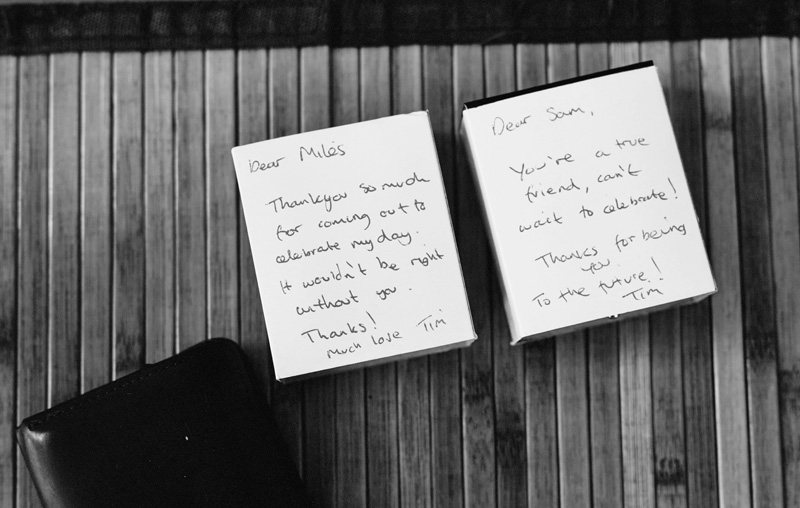 Dear Miles
Thankyou so much
for coming out to
celebrate my day.
It wouldn't be right
without you.
Thanks!
Much love Tim
Dear Sam,
You're a true
friend, can't
wait to celebrate!
Thanks for being
you.
To the future!
Tim